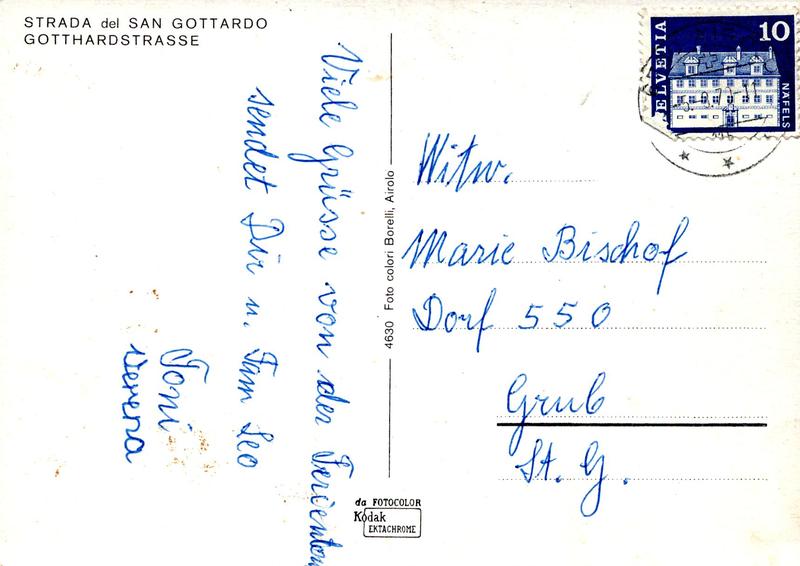 STRADA del SAN GOTTARDO
GOTTHARDSTRASSE
Viele Grüsse von der Ferientour
sendet Dir u. Fam Leo
Toni
Verena
4630 Foto colori Borelli, Airolo
HELVETIA
10
NÄFELS
Witw.
Marie Bischof
Dorf 550
Grub
St. G.
da FOTOCOLOR
Kodak
EKTACHROME